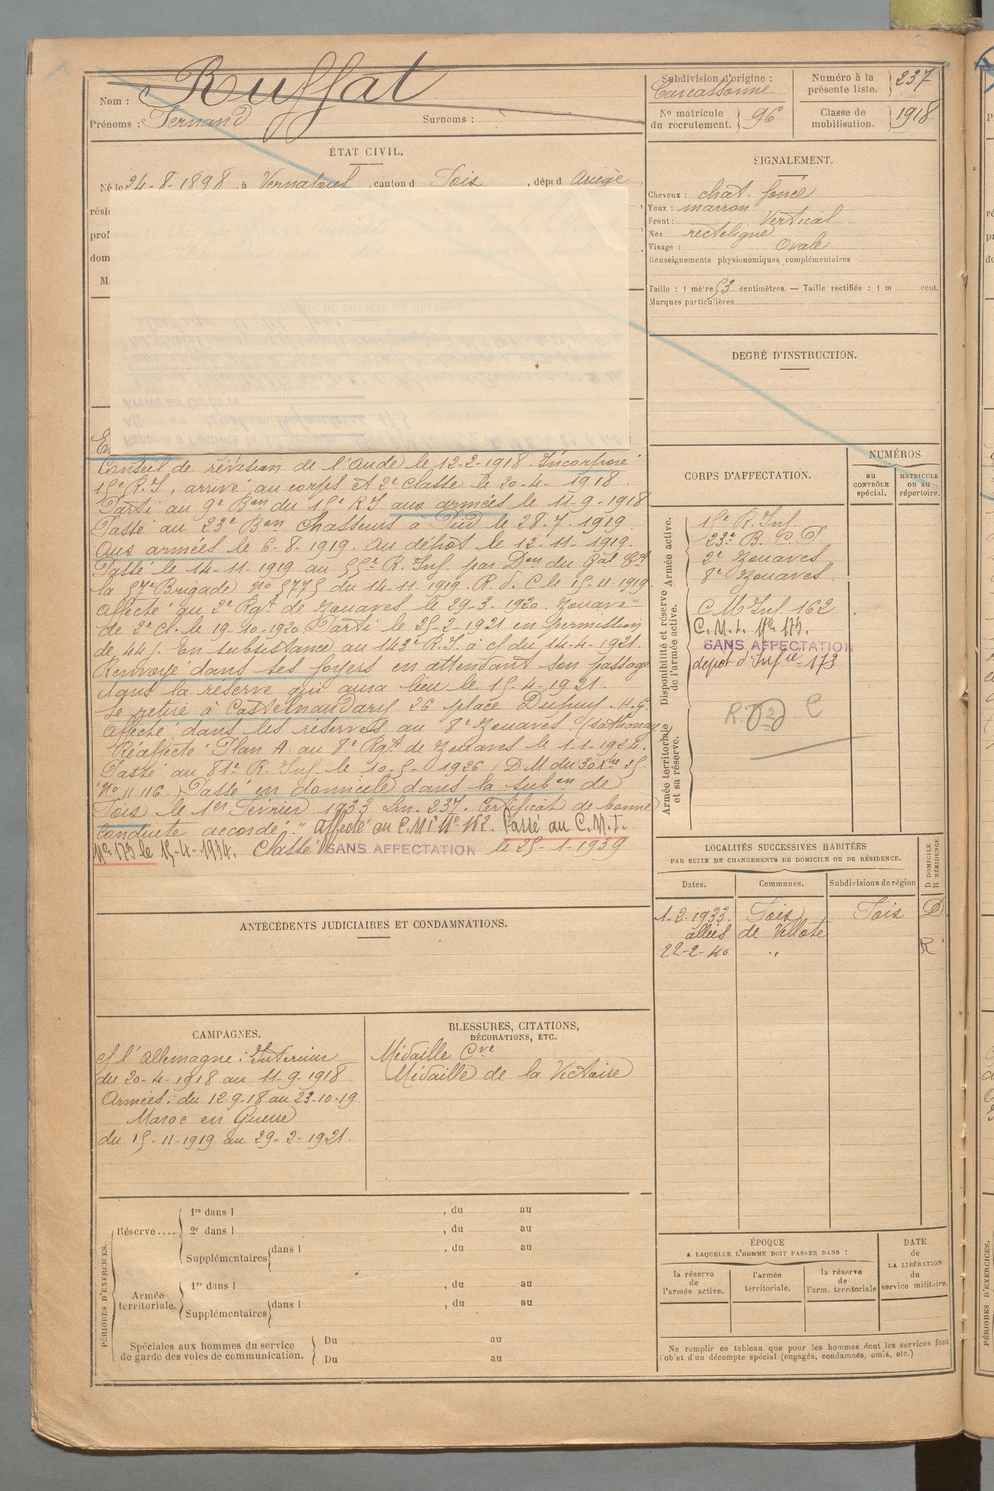 Nom : Ruffat
Prénoms : Fernand Surnoms :
Subdivision d'origine : Carcassonne
Nº matricule du recrutement. 96
Numéro à la présente liste. 237
Classe de mobilisation. 1918
ÉTAT CIVIL.
Né le 24-8-1898, à , canton d Foix, dép.t d Ariège
rési
prof
dom
M
SIGNALEMENT.
Cheveux : chat. foncé
Yeux : marron
Front : Vertical
Nez rectiligne
Visage : Ovale
Renseignements physionomiques complémentaires
Taille : 1 mètre 53 centimètres. — Taille rectifiée : 1 m cent.
Marques particulières
DEGRÉ D'INSTRUCTION.
Conseil de révision de l'Aude le 12-2-1918. Incorporé
15e R.I, arrivé au corps et 2e classe le 20-4-1918
Parti au 9e Bon du 15e R.I aux armées le 11-9-1918
Passé au 23e Bon Chasseurs à Pied le 28-7-1919.
Aux armées le 6-8-1919. Au dépôt le 12-11-1919.
Passé le 14-11-1919 au R. Inf. par Don du Gal Ct
la 57e Brigade Nº 5775 du 14-11-1919. R.d.C le 15-11-1919
Affecté au 2e Rgt de Zouaves le 29-3-1920. Zouave
de 2e cl. le 19-10-1920 Parti le 25-2-1921 en permission
de 44 j. En subsistance au 143e R.I. à c/ du 14-4-1921.
Renvoyé dans ses foyers en attendant son passage
dans la réserve qui aura lieu le 15-4-1921.
Se retire à Castelnaudary 26 place Dupuy. H.G.
Affecté dans les réserves au 8e Zouaves.
Réaffecté Plan A au 8e Rgt de Zouaves le 1-1-1924.
Passé au 81e R. Inf. le 10-5-1926 (DM du 30 Xbre 25
Nº 11116. Passé en domicile dans la subon de
Foix le 1er Février 1933 Lm. 237. Certificat de bonne
conduite accordé. " Affecté au C.M.I Nº 162. Passé au C.M.I.
Nº 173 le 15-4-1934. Classé SANS AFFECTATION le 25-1-1939
CORPS D'AFFECTATION.
NUMÉROS
au contrôle spécial.
matricule ou au répertoire.
Armée active.
15e R. Inf.
23e B. C. P
2e Zouaves
8e Zouaves
Disponibilité et réserve de l'armée active.
C M Inf 162
C.M.I. Nº 173.
SANS AFFECTATION
dépôt d'Infie 173
Armée territoriale et sa réserve.
LOCALITÉS SUCCESSIVES HABITÉES
PAR SUITE DE CHANGEMENTS DE DOMICILE OU DE RÉSIDENCE.
Dates. Communes. Subdivisions de région D DOMICILE R RÉSIDENCE.
1-2-1933. Foix Foix D
allées de Villote
22-2-40 " R
ANTÉCÉDENTS JUDICIAIRES ET CONDAMNATIONS.
CAMPAGNES.
c/ l'Allemagne : Intérieur
du 20-4-1918 au 11-9-1918
Armées : du 12-9-18 au 23-10-19
Maroc en Guerre
du 15-11-1919 au 29-2-1921.
BLESSURES, CITATIONS,
DÉCORATIONS, ETC.
Médaille Cve
Médaille de la Victoire
PÉRIODES D'EXERCICES.
Réserve.... 1re dans l , du au
2e dans l , du au
Supplémentaires dans l , du au
Armée territoriale. 1re dans l , du au
Supplémentaires dans l , du au
Spéciales aux hommes du service de garde des voies de communication. Du au
Du au
ÉPOQUE
A LAQUELLE L'HOMME DOIT PASSER DANS :
la réserve de l'armée active. l'armée territoriale. la réserve de l'arm. territoriale
DATE de LA LIBÉRATION du service militaire.
Ne remplir ce tableau que pour les hommes dont les services font
l'objet d'un décompte spécial (engagés, condamnés, omis, etc.)